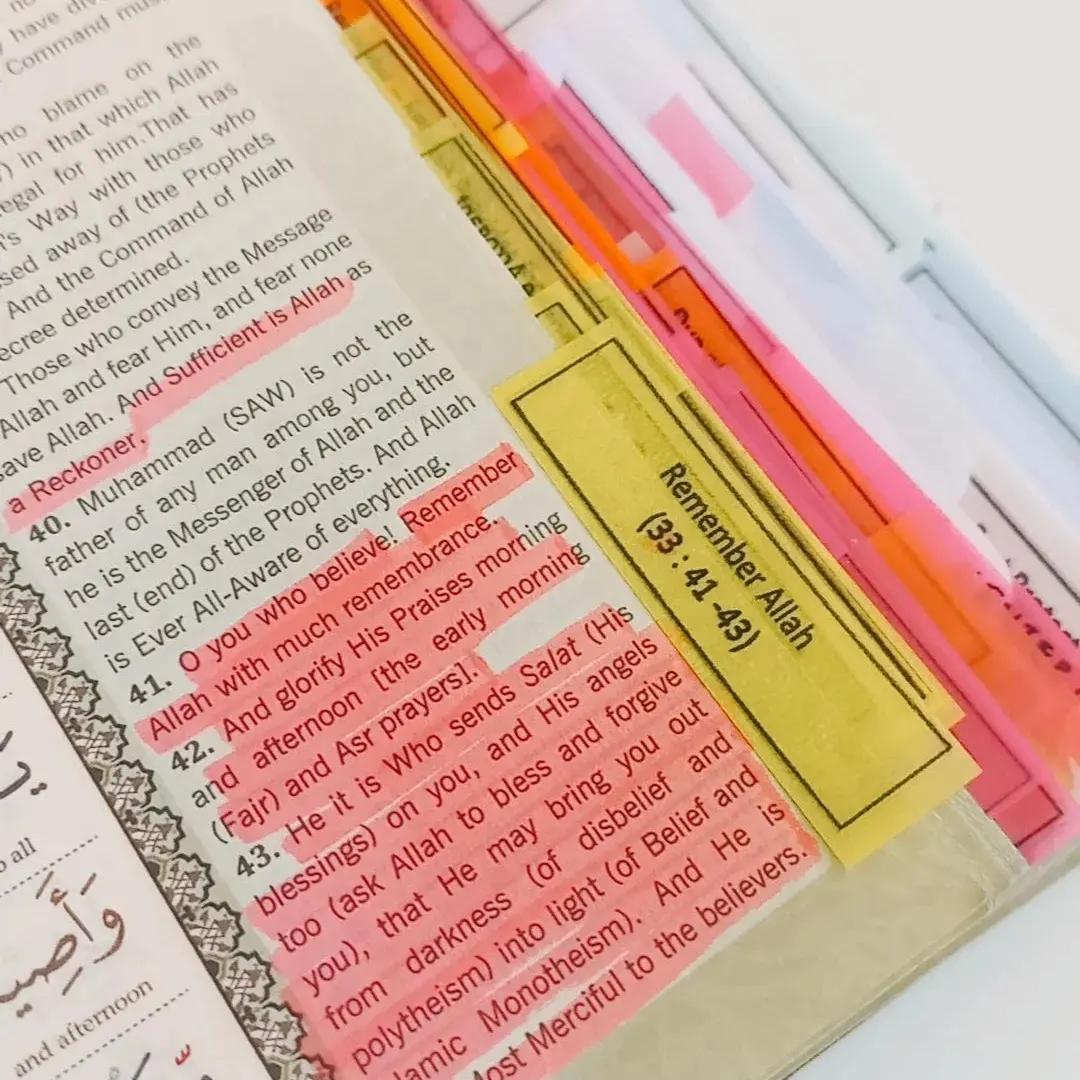 have div
Command mus
no blame on the
in that which Allah
legal for him.That has
's Way with those who
sed away of (the Prophets
And the Command of Allah
ecree determined.
Those who convey the Message
Allah and fear Him, and fear none
save Allah. And Sufficient is Allah as
a Reckoner.
40. Muhammad (SAW) is not the
father of any man among you, but
he is the Messenger of Allah and the
last (end) of the Prophets. And Allah
is Ever All-Aware of everything.
41. O you who believe! Remember
Allah with much remembrance.
42. And glorify His Praises morning
and afternoon [the early morning
(Fajr) and Asr prayers].
43. He it is Who sends Salat (His
blessings) on you, and His angels
too (ask Allah to bless and forgive
you), that He may bring you out
from darkness (of disbelief and
polytheism) into light (of Belief and
lamic Monotheism). And He is
ost Merciful to the believers.
Remember Allah
(33 : 41 -43)
all
وَأَصِي
and afternoon